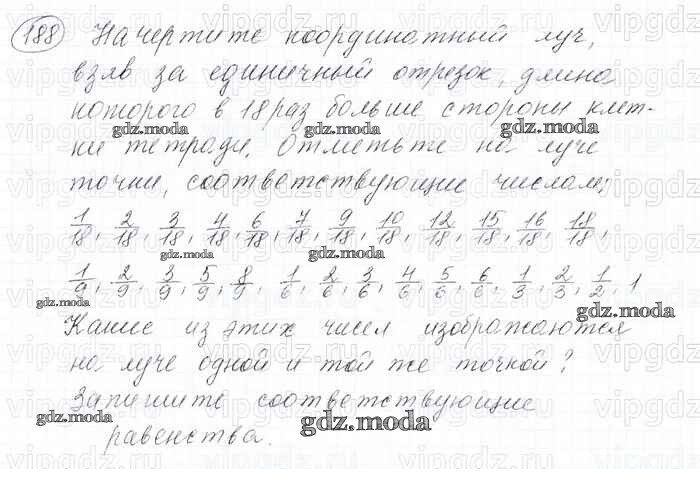 188 Начертите координатный луч,
взяв за единичный отрезок, длина
которого в 18 раз больше стороны клет-
ки тетради. Отметьте на луче
точки, соответствующие числам:
1/18, 2/18, 3/18, 4/18, 6/18, 7/18, 9/18, 10/18, 12/18, 15/18, 16/18, 18/18,
1/9, 2/9, 3/9, 5/9, 8/9, 1/6, 2/6, 3/6, 4/6, 5/6, 6/6, 1/3, 2/3, 1/2, 1
Какие из этих чисел изображаются
на луче одной и той же точкой?
Запишите соответствующие
равенства.
gdz.moda
gdz.moda
gdz.moda
gdz.moda
gdz.moda
gdz.moda
gdz.moda
gdz.moda
gdz.moda